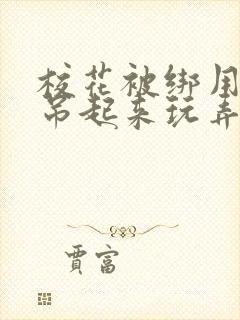 校花被绑用
吊起来玩弄
賈富